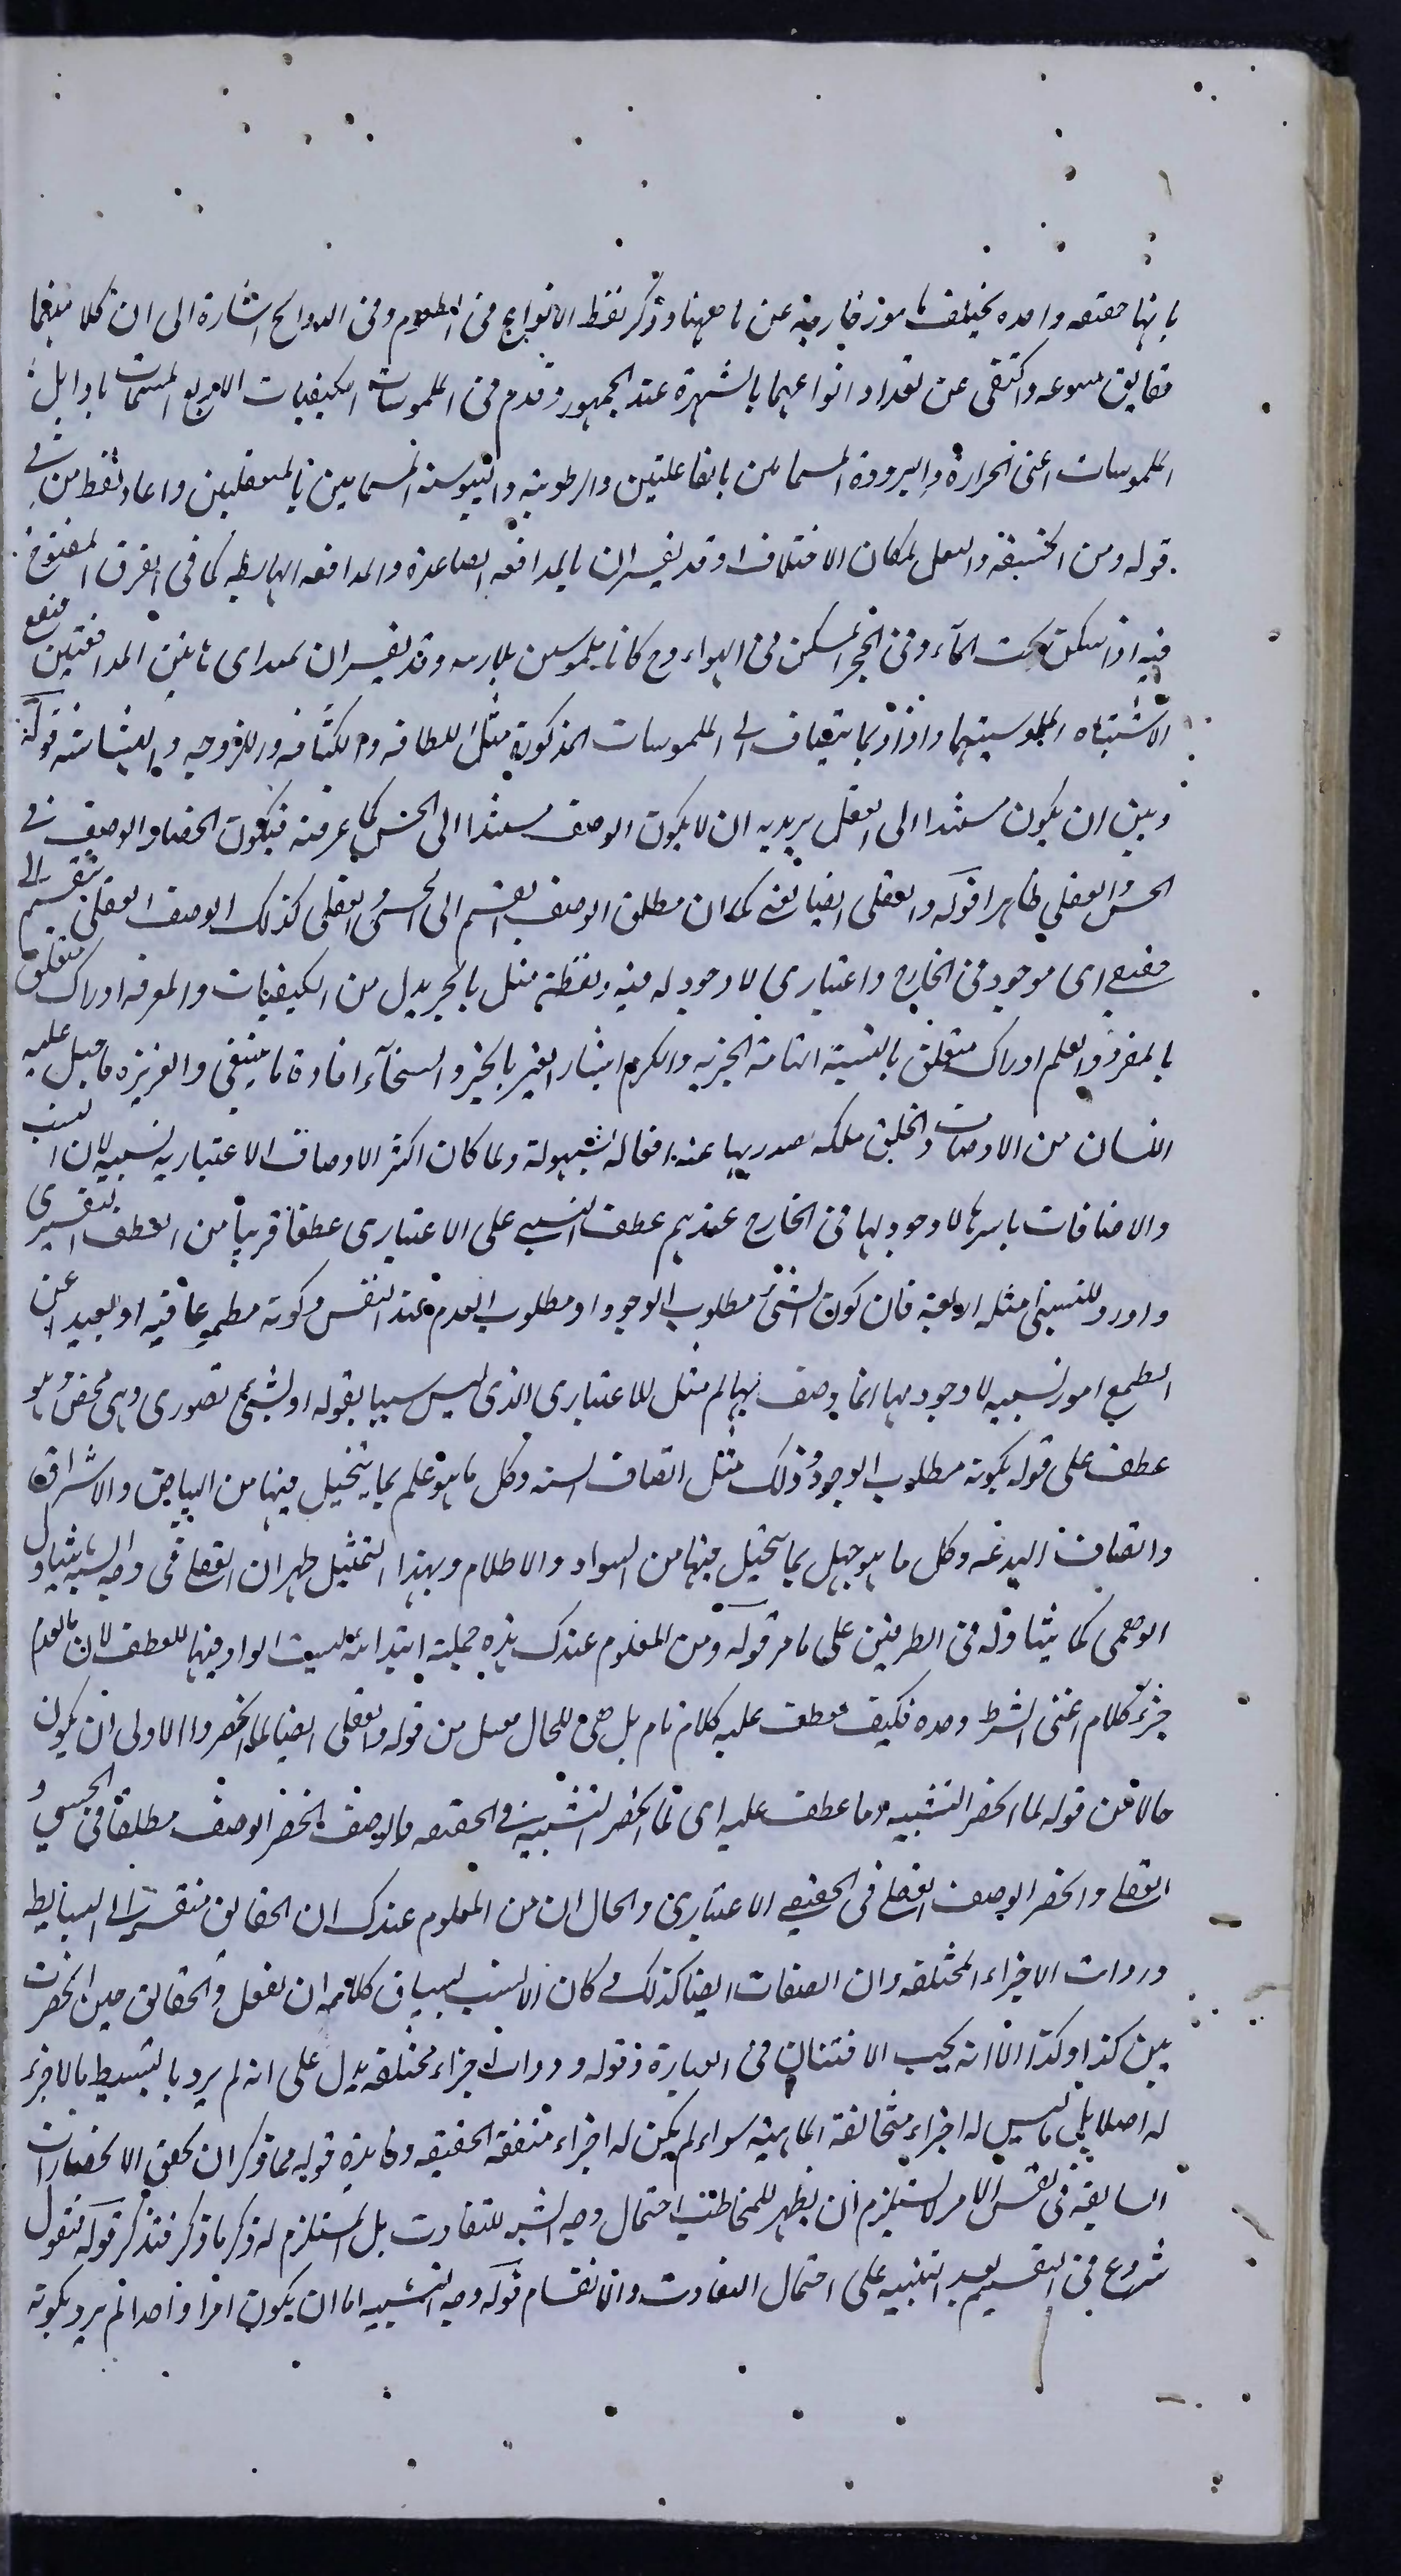 بانها حقيقه واحده يختلف بامور خارجيه عن ماهيتها وذكر لفظ الانواع فى الطعوم وفى الروائح اشارة الى ان كلا منهما
حقايق متنوعه واكتفى عن تعداد انواعهما بالشهرة عند الجمهور وقدم فى الملموسات الكيفيات الاربع المسمات باوايل
الملموسات اعنى الحرارة والبرودة المسماتين بالفاعليتين والرطوبة واليبوسة المسماتين بالمنفعلتين واعاد لفظ من فى
قوله ومن الخفة والثقل لمكان الاختلاف وقد يفسران بالمدافعه الصاعدة والمدافعه الهابطه كما فى الزق المنفوخ
فيه اذا سكن تحت الماء وفى الحجر المسكن فى الهواء وح كانا ملموسين بلا ريبه وقد يفسران بمبداى هاتين المدافعتين فيقع
الاشتباه لملموسيتهما واراد بما ينضاف الى الملموسات المذكورة مثل اللطافه والكثافه واللزوجه والهشاشه قوله
وبين ان يكون مستندا الى العقل يريد به ان لا يكون الوصف مستندا الى الحس كما عرفته فيكون انحصار الوصف فى
الحسى والعقلى ظاهرا قوله والعقلى ايضا يعنى كما ان مطلق الوصف انقسم الى الحسى والعقلى كذلك الوصف العقلى ينقسم الى
حقيقى اى موجود فى الخارج واعتبارى لا وجود له فيه ولفظة مثل بالجر بدل من الكيفيات والمعرفه ادراك متعلق
بالمفرد والعلم ادراك متعلق بالنسبة التامة الخبريه والكرم ايثار الغير بالخير والسخاء افادة ما ينبغى والغريزه ما جبل عليه
الانسان من الاوصاف والخلق ملكه يصدر بها عنه افعاله بسهولة ولما كان اكثر الاوصاف الاعتباريه نسبيه لان النسب
والاضافات باسرها لا وجود لها فى الخارج عندهم عطف النسبى على الاعتبارى عطفا قريبا من العطف التفسيرى
واورد للنسبى امثله اربعة فان كون الشئ مطلوب الوجود او مطلوب العدم عند النفس وكونه مطموعا فيه او بعيدا عن
الطمع امور نسبيه لا وجود لها انما يوصف بها ثم مثل للاعتبارى الذى ليس نسبيا بقوله او بشئ تصورى وهمى محض وهو
عطف على قوله بكونه مطلوب الوجود وذلك مثل اتصاف السنه وكل ما هو علم بما يتخيل فيها من البياض والاشراق
واتصاف البدعه وكل ما هو جهل بما يتخيل فيها من السواد والاظلام وبهذا التمثيل ظهر ان العقلى فى وجه الشبه يتناول
الوهمى كما يتناوله فى الطرفين على ما مر قوله ومن المعلوم عندك هذه جملة ابتدائية ليست الواو فيها للعطف لان ما تقدم
جزء كلام اعنى الشرط وحده فكيف يعطف عليه كلام تام بل هى للحال قيل من قوله والعقلى ايضا لما انحصر والاولى ان يكون
حالا من قوله لما انحصر التشبيه وما عطف عليه اى لما انحصر التشبيه فى الحقيقه والوصف وانحصر الوصف مطلقا فى الحسى و
العقلى وانحصر الوصف العقلى فى الحقيقى والاعتبارى والحال ان من المعلوم عندك ان الحقايق منقسمة الى البسايط
وذوات الاجزاء المختلفه وان الصفات ايضا كذلك وكان الانسب بسياق كلامه ان يقول والحقايق حين انحصرت
بين كذا وكذا الا انه يحب الافتنان فى العبارة وقوله وذوات اجزاء مختلفه يدل على انه لم يرد بالبسيط ما لا جزء
له اصلا بل ما ليس له اجزاء متخالفة الماهية سواء لم يكن له اجزاء متفقه الحقيقه وفايدة قوله مما ذكر ان تحقق الانحصارات
السابقة فى نفس الامر لا يستلزم ان يظهر للمخاطب احتمال وجه الشبه للتفاوت بل المستلزم له ذكر ما ذكر فتذكر قوله فنقول
شروع فى التقسيم بعد التنبيه على احتمال التفاوت والانقسام قوله وجه التشبيه اما ان يكون امرا واحدا لم يرد بكونه